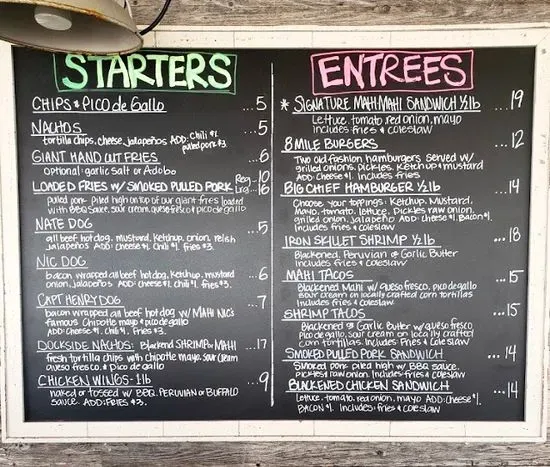 STARTERS
CHIPS & PICO de GALLO ...5
NACHOS ...5
tortilla chips, cheese, jalapeños ADD: Chili $1.
pulled pork $3.
GIANT HAND CUT FRIES ...6
Optional: garlic salt or Adobo
LOADED FRIES W/ SMOKED PULLED PORK Reg...10
Lrg...16
pulled pork piled high on top of our giant fries loaded
with BBQ Sauce, sour cream, queso fresco & pico de gallo
NATE DOG ...5
all beef hot dog, mustard, ketchup, onion, relish
jalapeños ADD: Cheese $1. Chili $1. fries $3.
NIC DOG ...6
bacon wrapped all beef hot dog, Ketchup, mustard
onion, jalapeños ADD: Cheese $1. chili $1. fries $3.
CAPT HENRY DOG ...7
bacon wrapped all beef hot dog w/ MAHI NIC's
famous Chipotle mayo & pico de gallo
ADD: Cheese $1. Chili $1. Fries $3.
DOCKSIDE NACHOS: Blackened SHRIMP or MAHI ...17
fresh tortilla chips with chipotle mayo, sour cream
queso fresco & Pico de gallo
CHICKEN WINGS - 1lb ...9
naked or tossed w/ BBQ, PERUVIAN or BUFFALO
SAUCE. ADD: FRIES $3.
ENTREES
* SIGNATURE MAHI MAHI SANDWICH 1/2 lb ...19
Lettuce, tomato, red onion, mayo
includes fries & coleslaw
8 MILE BURGERS ...12
Two old fashion hamburgers served w/
grilled onions, pickles, Ketchup & mustard
ADD: Cheese $1. includes fries
BIG CHIEF HAMBURGER 1/2 lb ...14
Choose your toppings: Ketchup, Mustard,
Mayo, tomato, lettuce, Pickles, raw onion,
grilled onion, jalapeño ADD: Cheese $1. Bacon $1.
Includes fries & coleslaw
IRON SKILLET SHRIMP 1/2 lb ...18
Blackened, Peruvian or Garlic Butter
Includes fries & coleslaw
MAHI TACOS ...15
Blackened Mahi w/ queso fresco, pico de gallo
sour cream on locally crafted corn tortillas
Includes fries & coleslaw
SHRIMP TACOS ...15
Blackened or Garlic Butter w/ queso fresco
Pico de gallo, sour cream on locally crafted
corn tortillas. Includes Fries & Coleslaw
SMOKED PULLED PORK SANDWICH ...14
Smoked pork piled high w/ BBQ sauce,
pickles & raw onion. Includes fries & coleslaw
BLACKENED CHICKEN SANDWICH ...14
Lettuce, tomato, red onion, mayo ADD: Cheese $1.
BACON $1. Includes: fries & coleslaw